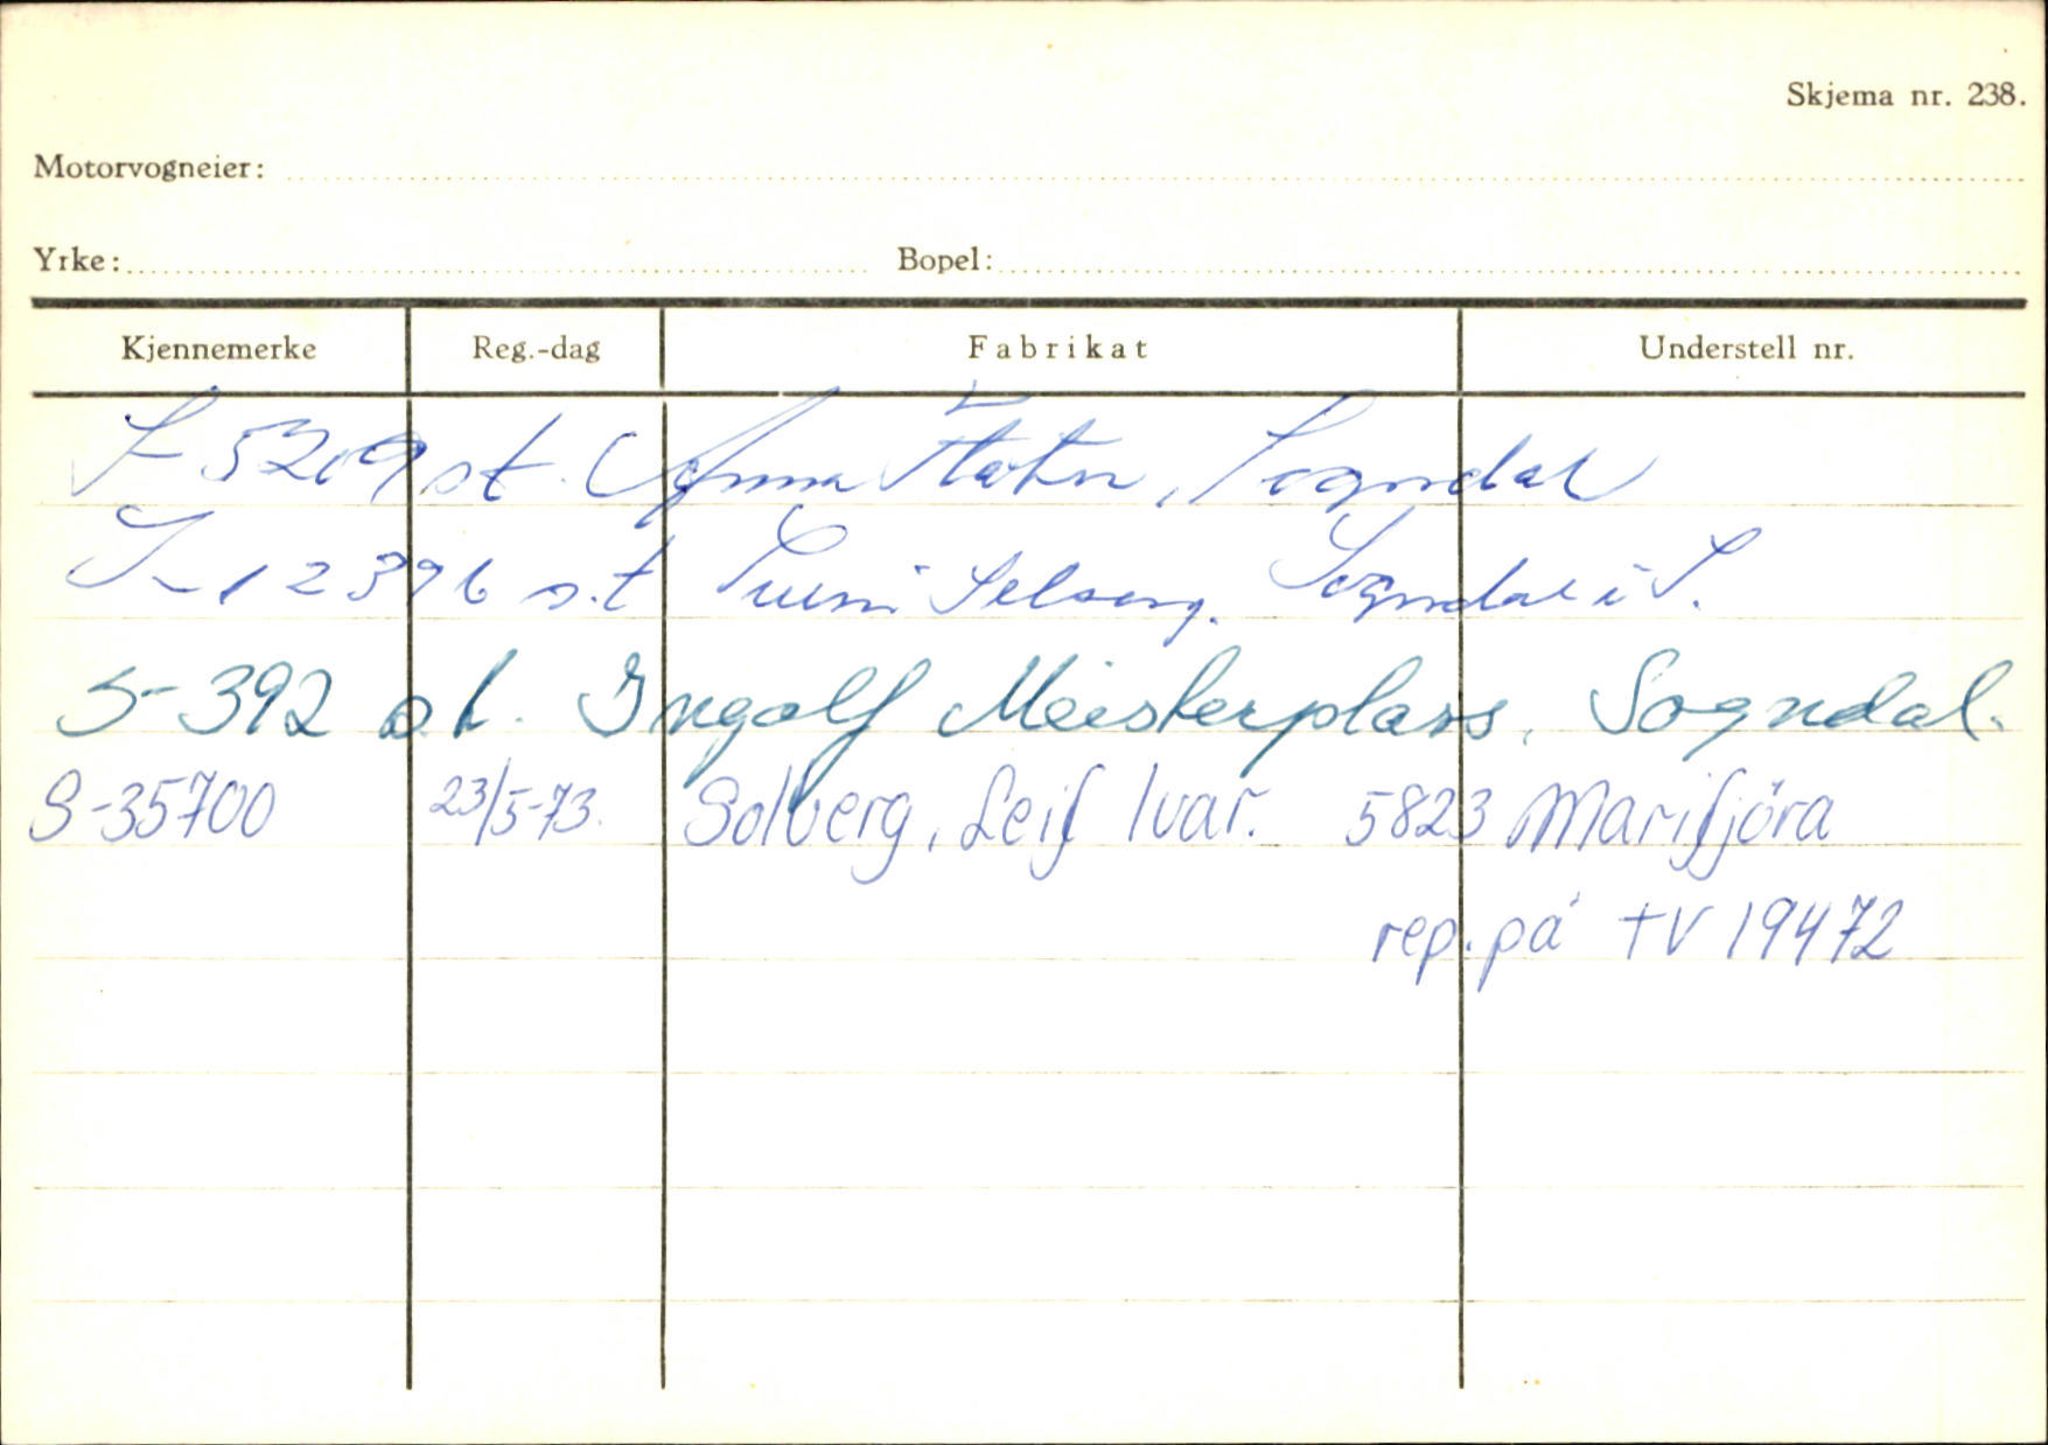 Skjema nr. 238.
Motorvogneier:
Yrke: Bopel:
Kjennemerke Reg.-dag Fabrikat Understell nr.
S-5209 s.t. Anna Sogndal
S-12396 s.t Selseng. Sogndal i S.
S-392 s.t. Ingolf Meisterplass, Sogndal.
S-35700 23/5-73. Solberg, Leif Ivar. 5823 Marifjöra
rep. på TV 19472